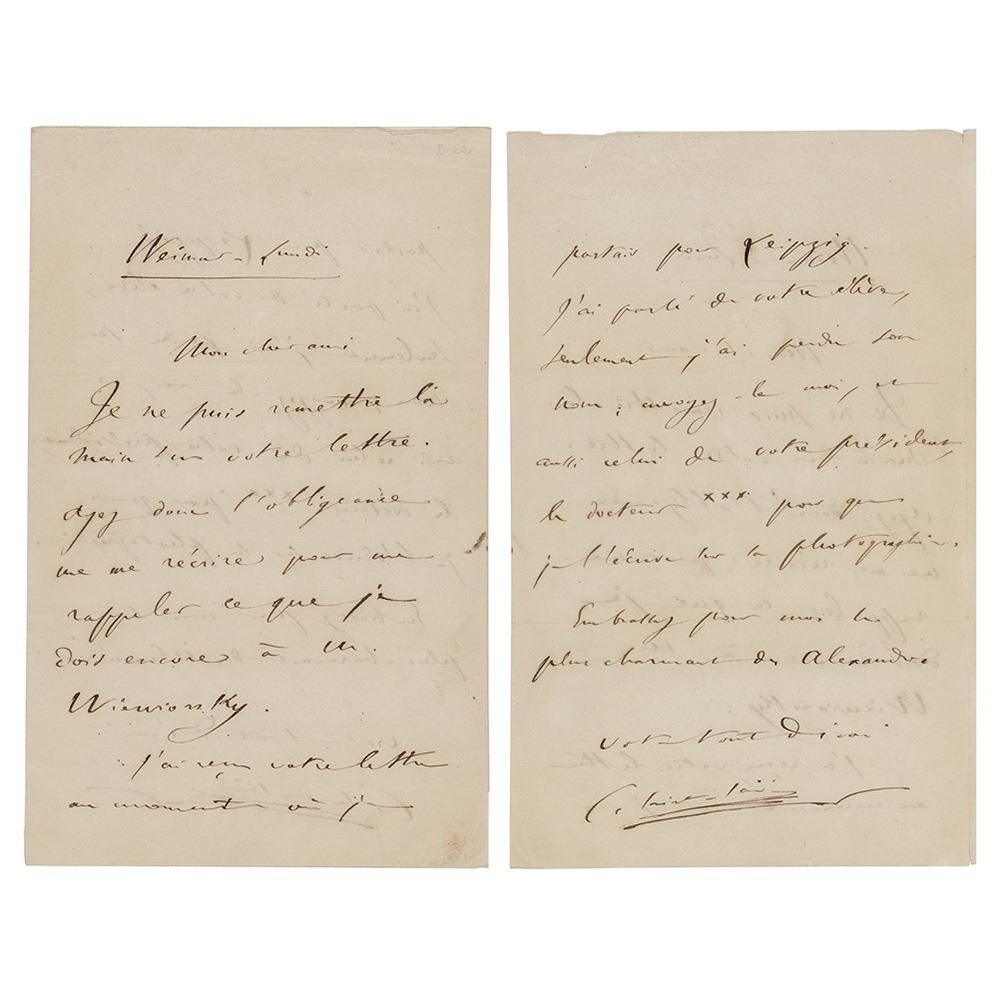 D 22
Weimar - Lundi
Mon cher ami
Je ne puis remettre la
main sur votre lettre.
Ayez donc l'obligeance
de me récrire pour me
rappeler ce que je
dois encore à M.
Wieniowsky.
J'ai reçu votre lettre
au moment où je
partais pour Leipzig.
J'ai parlé de votre élève,
seulement j'ai perdu son
nom; envoyez-le moi, et
aussi celui de votre président,
le docteur xxx pour que
je l'écrive sur la photographie.
Embrassez pour moi le
plus charmant des Alexandre
votre tout dévoué
C. Saint-Saëns